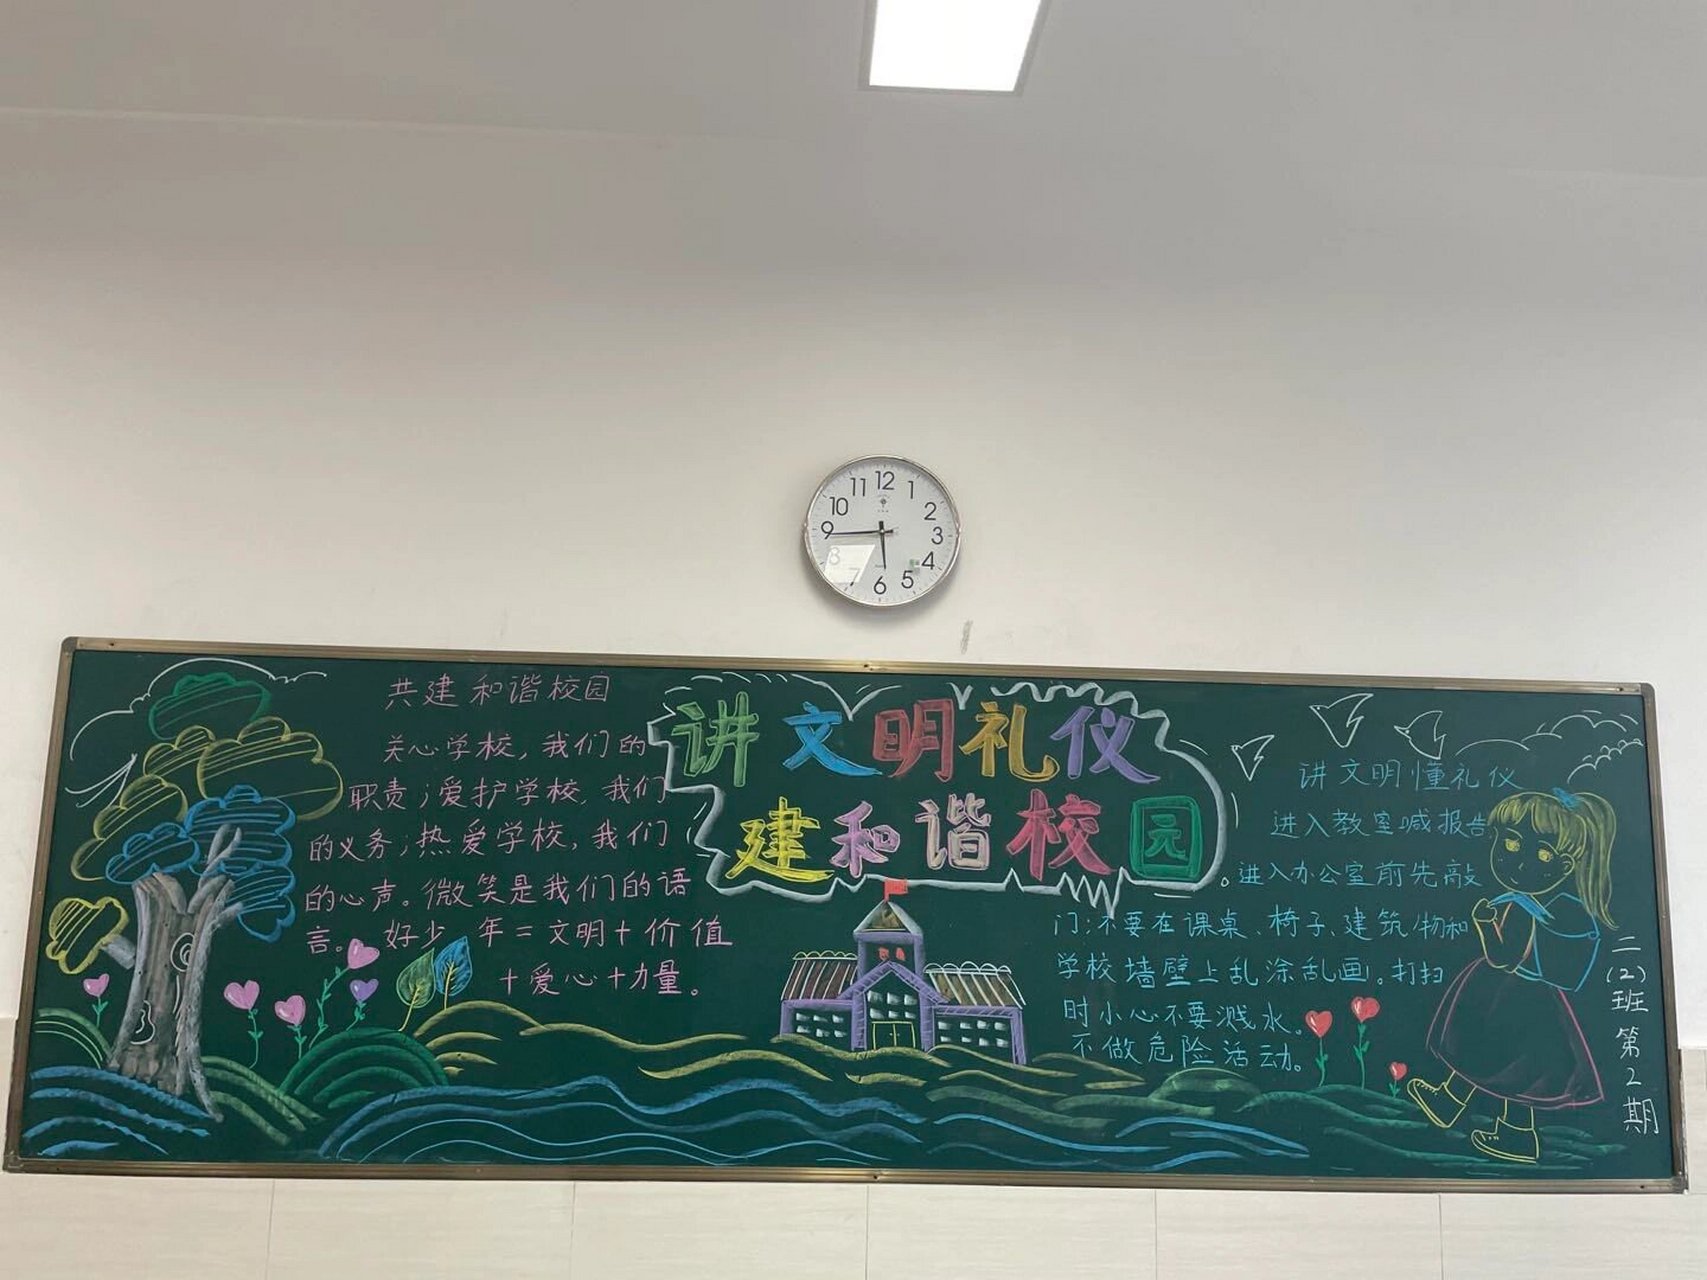 12
11
1
10
2
9
3
8
4
7
5
6
共建和谐校园
关心学校，我们的
职责；爱护学校，我们
的义务；热爱学校，我们
的心声。微笑是我们的语
言。好少年=文明+价值
+爱心+力量。
讲文明礼仪
建和谐校园
讲文明懂礼仪
进入教室喊报告
。进入办公室前先敲
门；不要在课桌、椅子、建筑物和
学校墙壁上乱涂乱画。打扫
时小心不要溅水。
不做危险活动。
二(2)班第2期